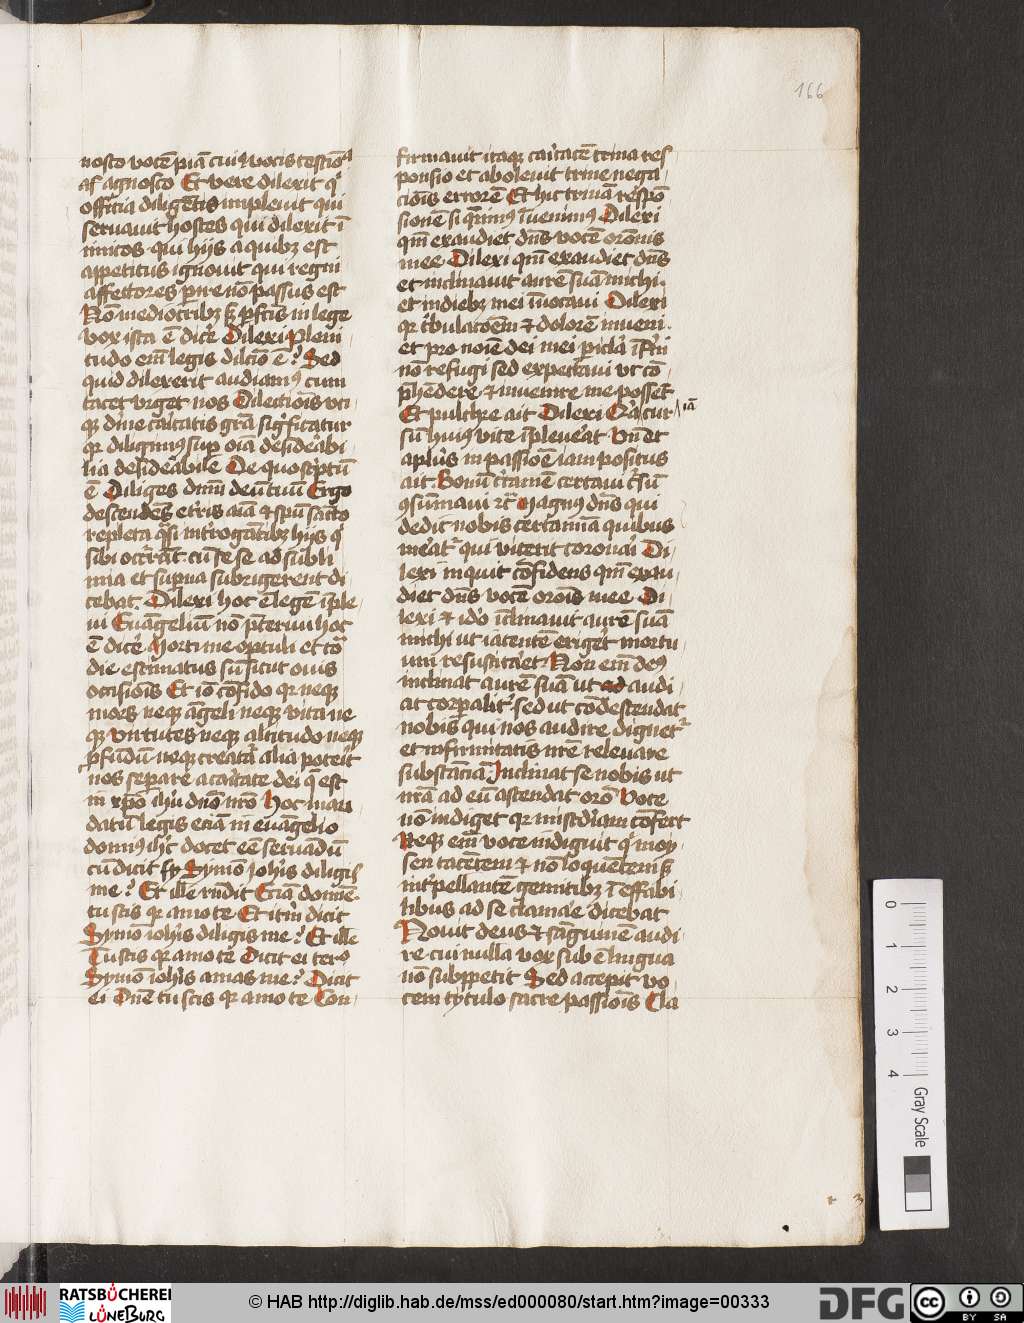 166
nosco vocē piā cui9 vocis testiō
Et vere dilexit q
officia diligētis implevit qui
seruauit hostes qui dilexit ī
imicos qui hijs a quibz est
appetitus ignouit qui regni
affectores pire nō passus est
Nō mediocribz pfctis in lege
vox ista ē dicē Dilexi Pleni
tudo em legis dilcio ē? Sed
quid dilexerit audiam9 cum
tacet vrget nos Dilectiois vti
qz diuie caritatis gra sigficatur
qr diligim9 sup oia desiderabi
lia desiderabile De quo scptū
ē Diliges dnm deū tuū Ergo
descendēs etris aia & spū sācto
repleta qsi introgātibz hijs q
sibi occrāt cū se se ad subli
mia et supna subrigerent di
cebat Dilexi hoc ē legē iple
ui Euāngeliū nō pteriui hoc
ē dicē Morti me optuli et to
die estimatus sū sicut ouis
occisiois Et io cōfido qr neqz
mors neqz āgeli neqz vita ne
qz virtutes neqz altitudo neqz
pfundū neqz creata alia poterit
nos separe a caritate dei q est
in xpo ihu dno nro Hoc man
datū legis eciā in euāgelio
domin9 ihc docet eē seruādū
cū dicit Symō iohis diligis
me? Et ille rndit Eciā domie
tu scis qr amo te Et itm dicit
Symō iohis diligis me? Et ille
Tu scis qr amo te Dicit ei tero
Symō iohis amas me? Dicit
ei Dne tu scis qr amo te Con
firmauit itaqz caritatē trina res
ponsio et aboleuit trine nega
ciois errorē Et hic trinā respō
sionē si qrim9 iuenim9 Dilexi
qm exaudiet dns vocē orōnis
mee Dilexi qm exaudiet dns
et inclinauit aurē suā michi
et in diebz mei iuocaui Dilexi
qr tbulacoēm & dolorē inueni
et pro noie dei mei picla īfni
nō refugi sed expectaui vt cō
phēdere & inuenire me possēt
Et pulchre ait Dilexi Qr iā cur
sū huius vite ipleuerat Vn et
aplus in passioē iam positus
ait Bonū ctamē certaui csū
9sūmaui rc Magnus dns qui
dedit nobis certamina quibus
meat qui vicerit coronari Di
lexi inquit cōfidens qm exau
diet dns vocē orois mee Di
lexi & ido iclinauit aurē suā
michi ut iacentē eriget mortu
um resuscitaret Non em de9
inclinat aurē suā ut ad audi
at corpalit sed ut cōdescendat
nobis qui nos audire dignet
et infirmitatis nre releuare
substāciā Inclinat se nobis ut
nra ad eū ascendat orō Voce
nō indiget qr misdiam cōfert
Neqz em voce indiguit q moy
sen tacētem & nō loquētem
intpellantē gemitibz ieffabi
libus ad se clamare dicebat
Nouit deus & sāguinē audi
re cui nulla vox sub ē lingua
nō subppetit Sed accepit vo
cem tytulo sacre passiois Cla
0
1
2
3
4
Gray Scale
RATSBÜCHEREI
LÜNEBURG
© HAB http://diglib.hab.de/mss/ed000080/start.htm?image=00333
DFG
cc
BY SA